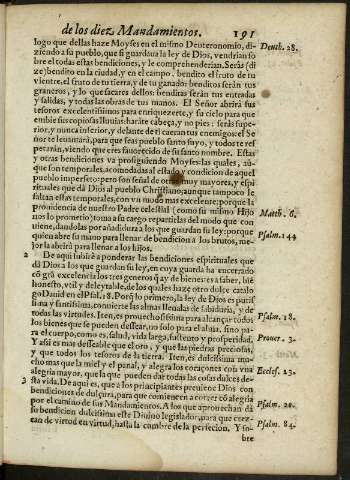 de los diez Mandamientos. 191
logo que dellas haze Moyses en el mismo Deuteronomio, di-
ziendo a su pueblo, que si guardaua la ley de Dios, vendrian so
bre el todas estas bendiciones, y le comprehenderian. Seràs (di
ze) bendito en la ciudad, y en el campo. bendito el fruto de tu
vientre, el fruto de tu tierra, y de tu ganado: benditos seràn tus
graneros, y lo que sacares dellos: benditas seràn tus entradas
y salidas, y todas las obras de tus manos. El Señor abrirà sus
tesoros excelentissimos para enriquezerte, y su cielo para que
embie sus copiosas lluuias: harate cabeça, y no pies: seràs supe-
rior, y nunca inferior, y delante de ti caeràn tus enemigos: el Se
ñor te leuantarà, para que seas pueblo santo suyo, y todos te res
petaràn, viendo que eres fauorecido de su santo nombre. Estas
y otras bendiciones va prosiguiendo Moyses: las quales, aũ-
que son temporales, acomodadas al estado y condicion de aquel
pueblo imperfeto: pero son señal de otras muy mayores, y espi
rituales que dà Dios al pueblo Christiano; aunque tampoco le
faltan estas temporales, con vn modo mas excelente: porque la
prouidencia de nuestro Padre celestial (como su mismo Hijo
nos lo prometio) toma a su cargo repartirlas del modo que con
uiene, dandolas por añadidura a los que guardan su ley: porque
quien abre su mano para llenar de bendicion a los brutos, me-
jor la abrirà para llenar a los hijos.
2 De aqui subirè a ponderar las bendiciones espirituales que
dà Dios a los que guardan su ley, en cuya guarda ha encerrado
cõ grã excelencia los tres generos q̃ ay de bienes: es a saber, biẽ
honesto, vtil y deleytable, de los quales haze otro dulce catalo
go Dauid en el Psal. 18. Porq̃ lo primero, la ley de Dios es purif
sima y santissima, conuierte las almas llenalas de sabiduria, y de
todas las virtudes. Iten, es prouechosissima para alcançar todos
los bienes que se pueden dessear, no solo para el alma, sino pa-
ra el cuerpo, como es, salud, vida larga, sustento y prosperidad.
Y assi es mas desseable que el oro, y que las piedras preciosas,
y que todos los tesoros de la tierra. Iten, es dulcissima mu-
cho mas que la miel y el panal, y alegra los coraçones con vna
alegria mayor, que la que pueden dar todas las cosas dulces de-
3 sta vida. De aqui es, que a los principiantes preuiene Dios con
bendiciones de dulçura, para que comiencen a correr cõ alegria
por el camino de sus Mandamientos. A los que aprouechan dà
su bendicion dulcissima este Diuino legislador, para que crez-
can de virtud en virtud, hasta la cumbre de la perfecion. Y so-
bre
Deuth. 28.
Matth. 6.
Psalm. 144
Psalm. 18.
Prouer. 3.
Ecclef. 23.
Psalm. 20.
Psalm. 84.